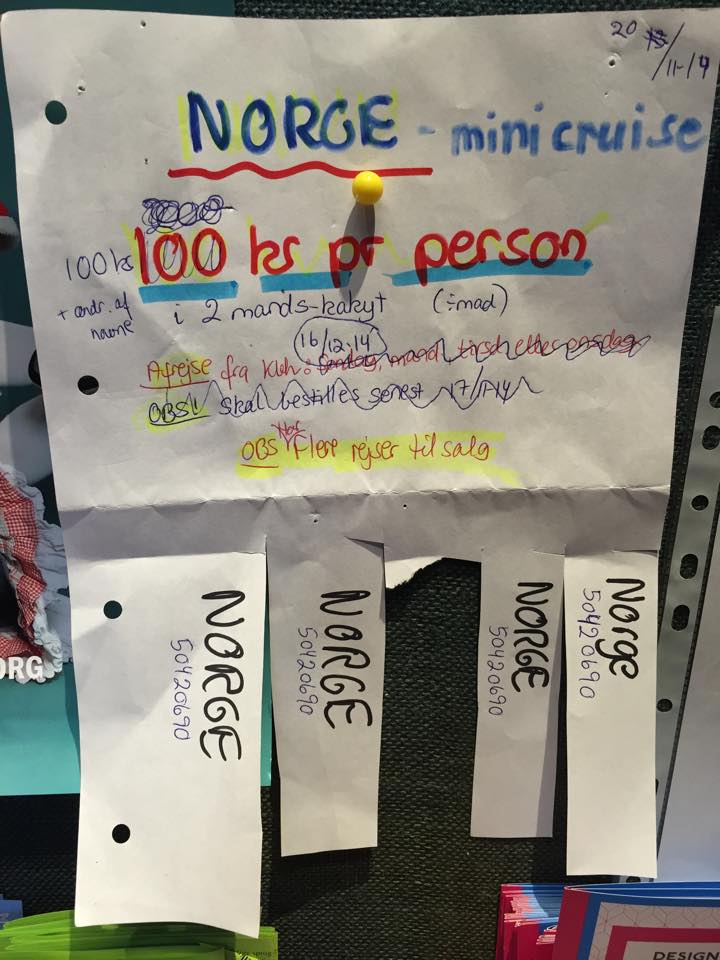 20 /11-14
NORGE - mini cruise
100 kr 100 kr pr person
+ ændr. af navne
i 2 mands-kahyt (÷mad)
16/12-14
Afrejse fra Kbh: søndag, mand, tirsd eller onsdag
OBS! Skal bestilles senest 17/11-14
OBS Har Flere rejser til salg
NORGE
50420690
NORGE
50420690
NORGE
50420690
Norge
50420690
ORG
DESIGN